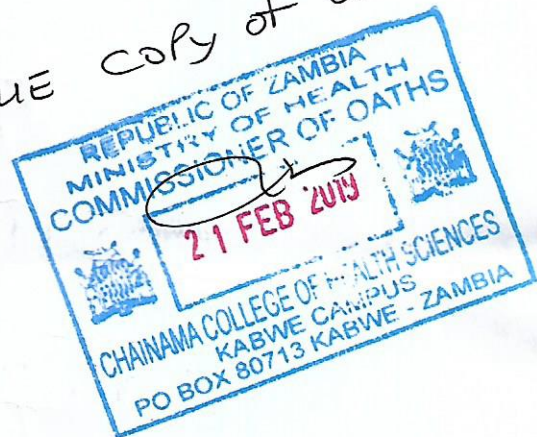 UE COPY of
REPUBLIC OF ZAMBIA
MINISTRY OF HEALTH
COMMISSIONER OF OATHS
21 FEB 2019
CHAINAMA COLLEGE OF HEALTH SCIENCES
KABWE CAMPUS
PO BOX 80713 KABWE - ZAMBIA